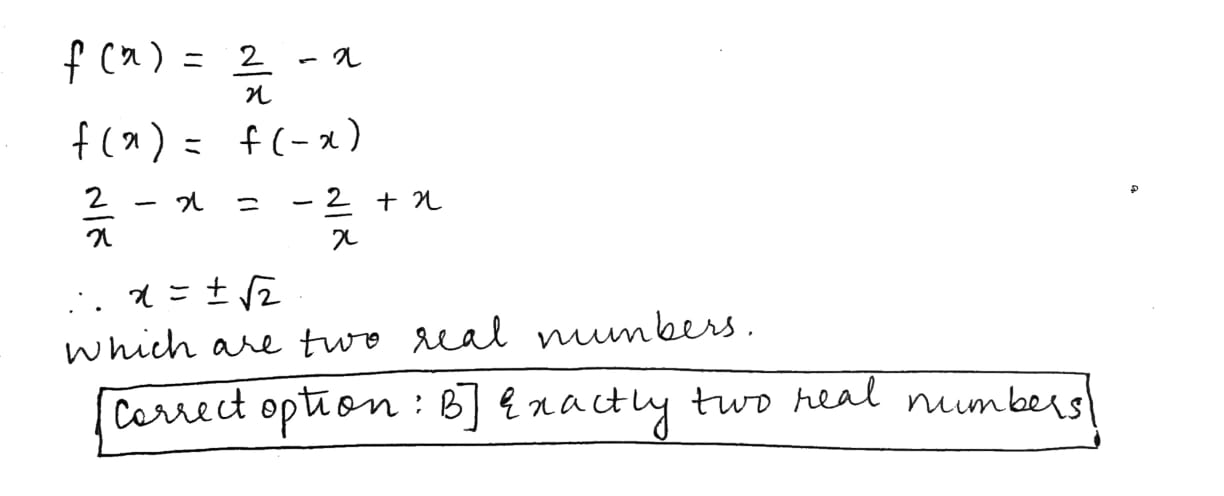 f(x) = 2/x - x
f(x) = f(-x)
2/x - x = -2/x + x
∴ x = ± √2
which are two real numbers.
Correct option : B] Exactly two real numbers